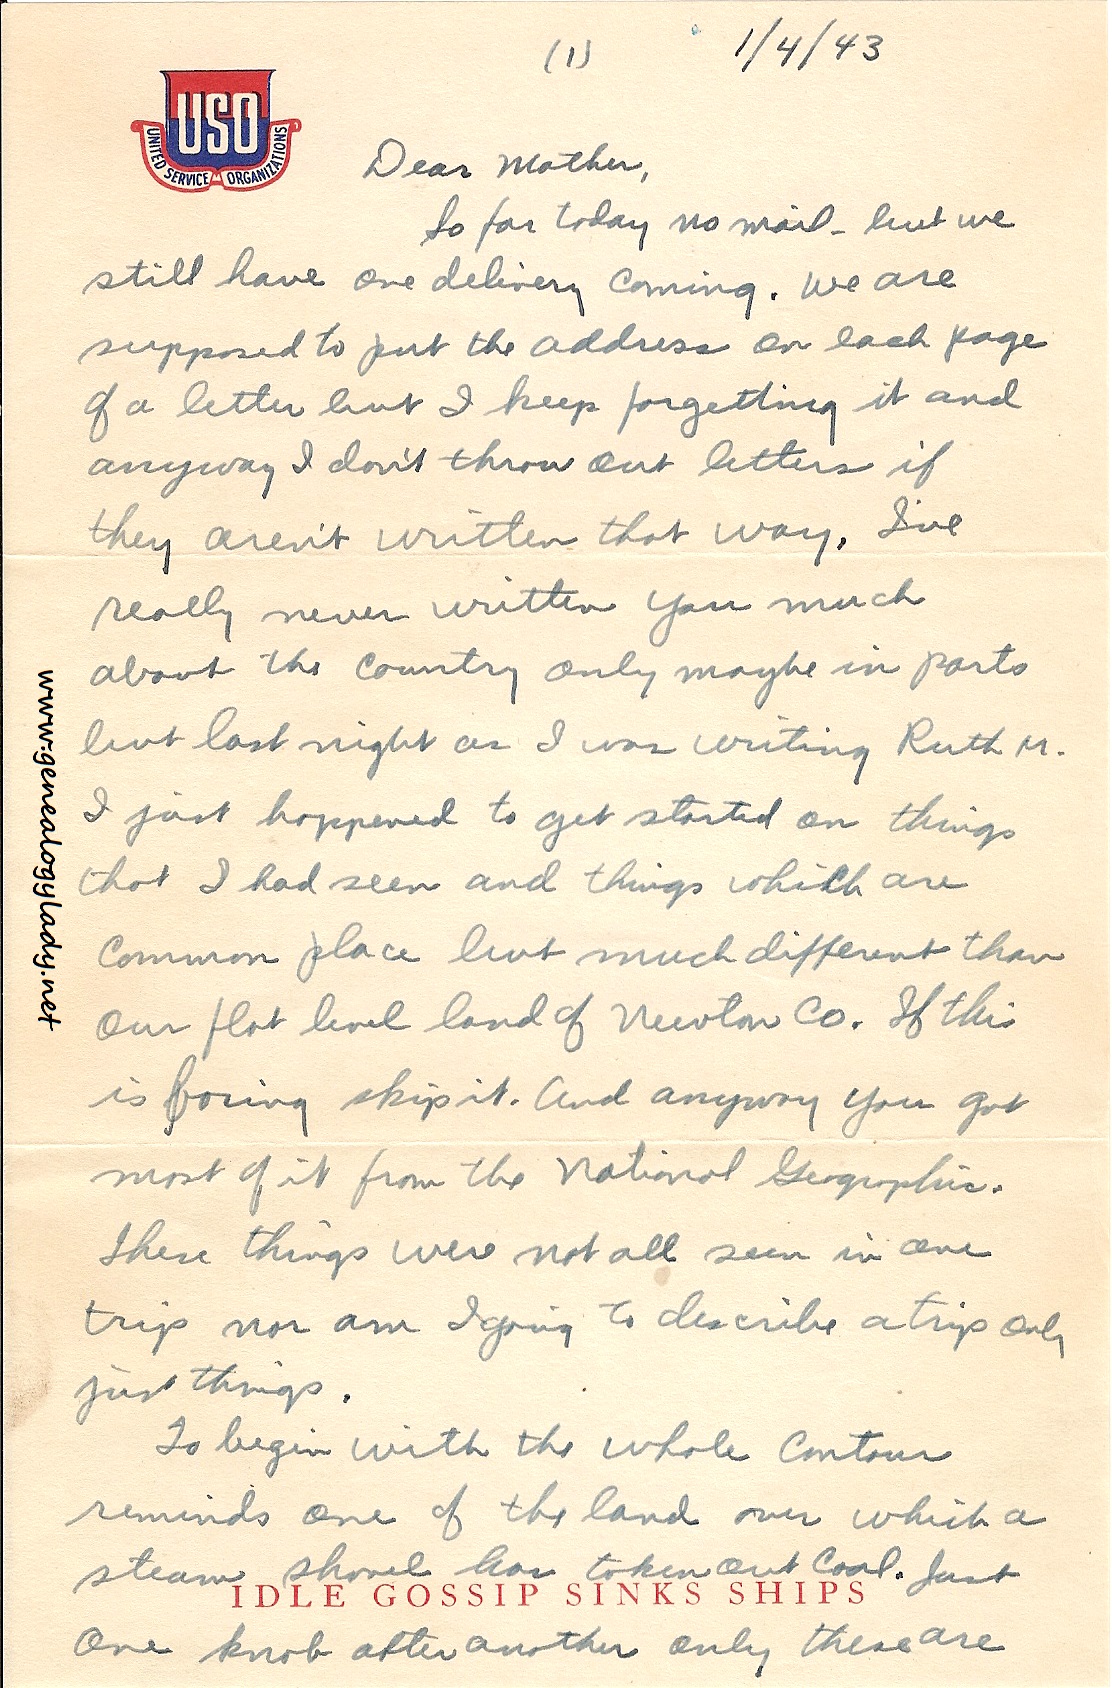 (1)
1/4/43
USO
UNITED SERVICE ORGANIZATIONS
Dear Mother,
So far today no mail - but we
still have one delivery coming. We are
supposed to put the address on each page
of a letter but I keep forgetting it and
anyway I don't throw out letters if
they aren't written that way. I've
really never written you much
about the country only maybe in parts
but last night as I was writing Ruth M.
I just happened to get started on things
that I had seen and things which are
common place but much different than
our flat level land of Newton Co. If this
is boring skip it. And anyway you got
most of it from the National Geographic.
These things were not all seen in one
trip nor am I going to describe a trip only
just things.
To begin with the whole contour
reminds one of the land over which a
steam shovel has taken out coal. Just
IDLE GOSSIP SINKS SHIPS
one knob after another only these are
www.genealogylady.net